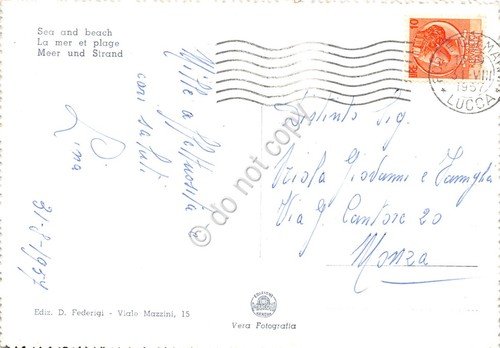 Sea and beach
La mer et plage
Meer und Strand
10
MAR
VIII
1957
* LUCCA *
Mille affettuosità e
cari saluti
Lina
31-8-1957
Distinto Sig.
Viola Giovanni e Famiglia
Via G. Cantore 20
Monza
do not copy
Ediz. D. Federigi - Viale Mazzini, 15
Vera Fotografia